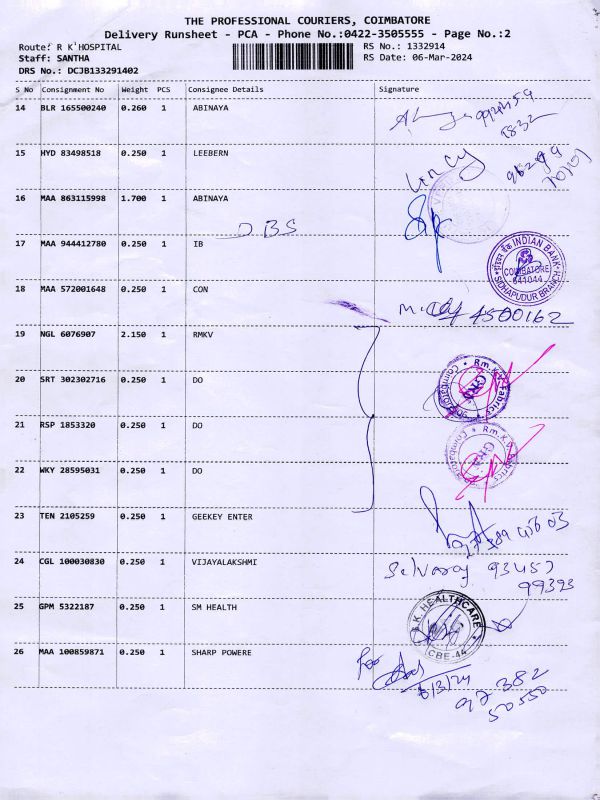 THE PROFESSIONAL COURIERS, COIMBATORE
Delivery Runsheet - PCA - Phone No.:0422-3505555 - Page No.:2
Route: R K HOSPITAL
RS No.: 1332914
Staff: SANTHA
RS Date: 06-Mar-2024
DRS No.: DCJB133291402
S No Consignment No Weight PCS Consignee Details Signature
14 BLR 165500240 0.260 1 ABINAYA
15 HYD 83498518 0.250 1 LEEBERN
16 MAA 863115998 1.700 1 ABINAYA
DBS
17 MAA 944412780 0.250 1 IB
INDIAN BANK
COIMBATORE
641044
SIDHAPUDUR BRANCH
18 MAA 572001648 0.250 1 CON
4500162
19 NGL 6076907 2.150 1 RMKV
20 SRT 302302716 0.250 1 DO
Rm.K.V Fabrics
Coimbatore
21 RSP 1853320 0.250 1 DO
Rm.K.V Fabrics
Coimbatore
22 WKY 28595031 0.250 1 DO
23 TEN 2105259 0.250 1 GEEKEY ENTER
24 CGL 100030830 0.250 1 VIJAYALAKSHMI
Selvaraj 93457
99393
25 GPM 5322187 0.250 1 SM HEALTH
K. HEALTHCARE
CBE-44
26 MAA 100859871 0.250 1 SHARP POWERE
6/3/24
97 382
50550